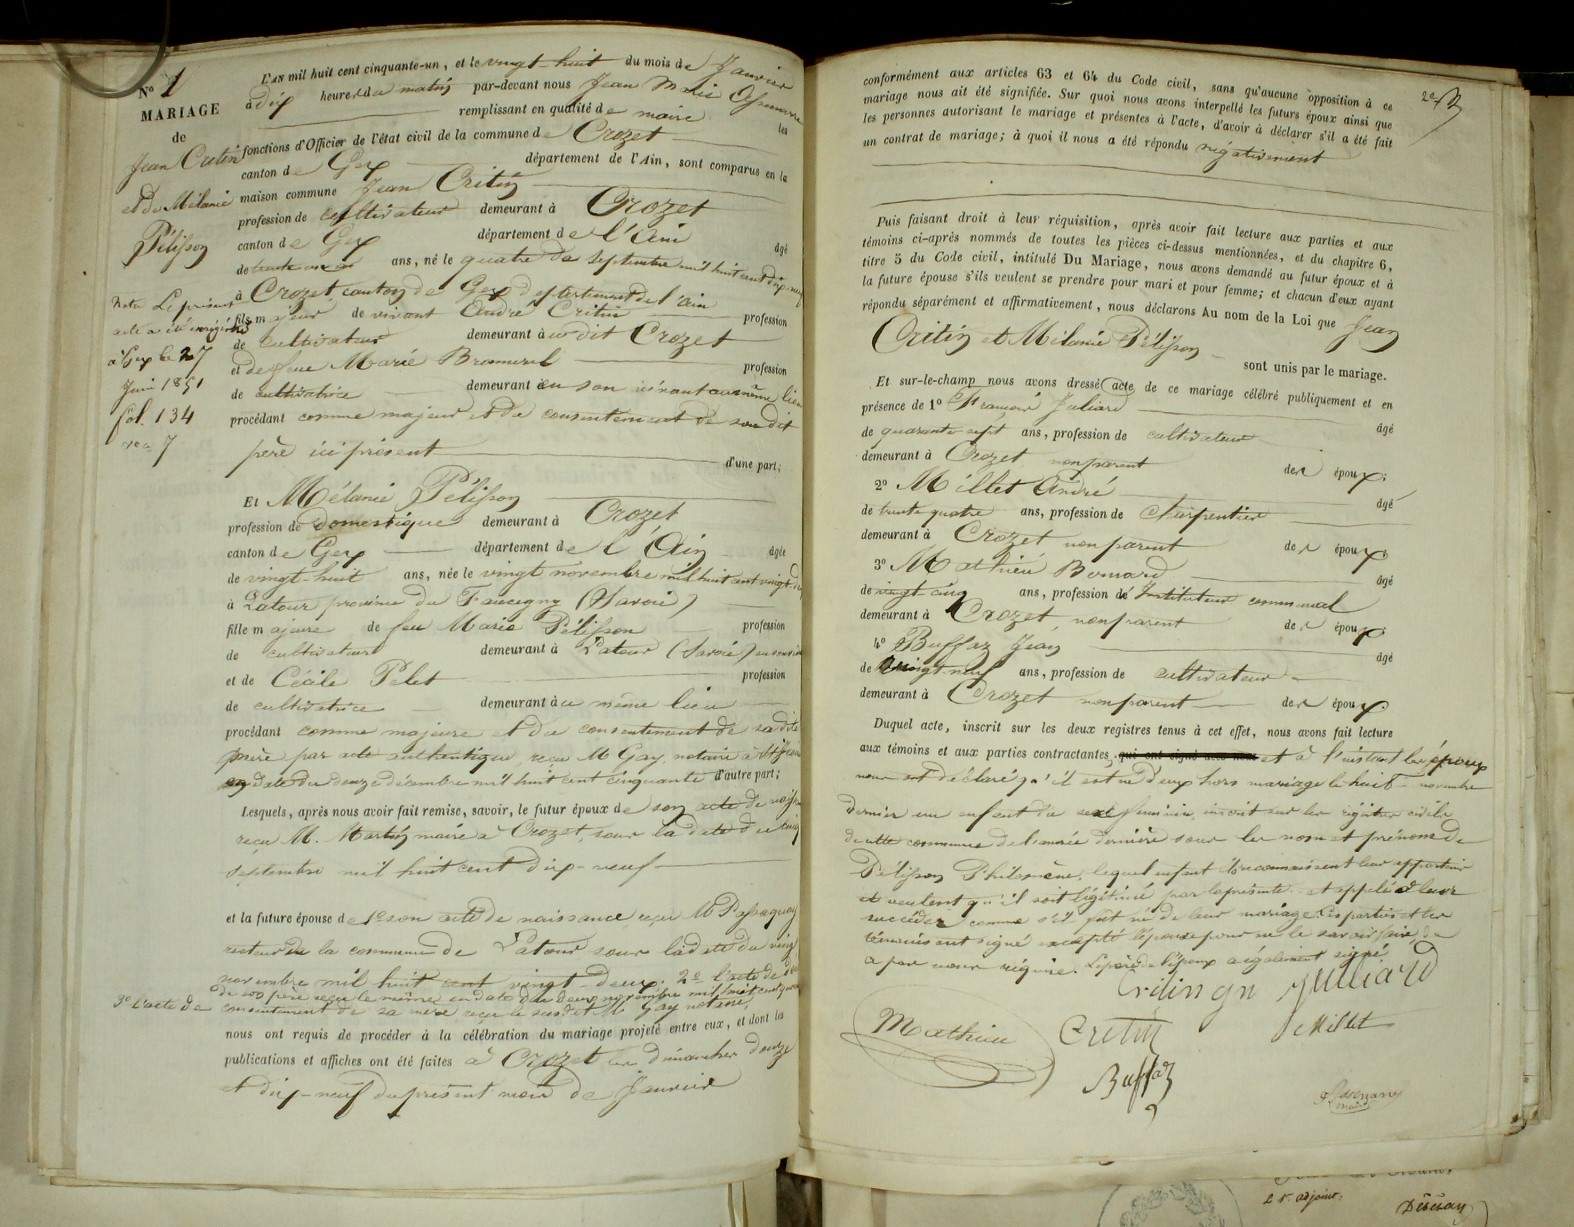 No 1
MARIAGE
de
Jean Critin
et de Mélanie
Pélisson
Nota Le présent
acte a été enregistré
à Gex le 27
Juin 1851
fol. 134
L'AN mil huit cent cinquante-un, et le vingt huit du mois de Janvier
à dix heures du matin par-devant nous Jean Marie
remplissant en qualité de maire les
fonctions d'Officier de l'état civil de la commune de Crozet
canton de Gex département de l'Ain, sont comparus en la
maison commune Jean Critin
profession de cultivateur demeurant à Crozet
canton de Gex département de l'Ain âgé
de trente un ans, né le quatre de septembre mil huit cent dix-neuf
à Crozet canton de Gex département de l'ain
fils majeur de vivant André Critin profession
de cultivateur demeurant à dit Crozet
et de feue Marie profession
de cultivatrice demeurant en son vivant au même lieu
procédant comme majeur et du consentement de son dit
père ici présent d'une part;
Et Mélanie Pélisson
profession de Domestique demeurant à Crozet
canton de Gex département de l'Ain âgée
de vingt-huit ans, née le vingt novembre mil huit cent vingt-deux
à Latour province du Faucigny (Savoie)
fille majeure de feu Marie Pélisson profession
de cultivateur demeurant à Latour (Savoie) en son vivant
et de Cécile Pelet profession
de cultivatrice demeurant au même lieu
procédant comme majeure et du consentement de sa dite
mère par acte authentique reçu M Gay notaire à
en date du douze décembre mil huit cent cinquante d'autre part;
Lesquels, après nous avoir fait remise, savoir, le futur époux de son acte de naissance
reçu M. Martin maire à Crozet, sous la date du cinq
septembre mil huit cent dix-neuf
et la future épouse de 1º son acte de naissance reçu M
recteur de la commune de Latour sous la date du vingt
novembre mil huit cent vingt-deux. 2º l'acte de décès
de son père reçu le même en date du deux novembre mil huit cent
3º l'acte de consentement de sa mère reçu le susdit M Gay notaire,
nous ont requis de procéder à la célébration du mariage projeté entre eux, et dont la
publications et affiches ont été faites à Crozet les dimanches douze
et dix-neuf du présent mois de Janvier
conformément aux articles 63 et 64 du Code civil, sans qu'aucune opposition à ce
mariage nous ait été signifiée. Sur quoi nous avons interpellé les futurs époux ainsi que
les personnes autorisant le mariage et présentes à l'acte, d'avoir à déclarer s'il a été fait
un contrat de mariage; à quoi il nous a été répondu négativement
Puis faisant droit à leur réquisition, après avoir fait lecture aux parties et aux
témoins ci-après nommés de toutes les pièces ci-dessus mentionnées, et du chapitre 6,
titre 5 du Code civil, intitulé Du Mariage, nous avons demandé au futur époux et à
la future épouse s'ils veulent se prendre pour mari et pour femme; et chacun d'eux ayant
répondu séparément et affirmativement, nous déclarons Au nom de la Loi que Jean
Critin et Mélanie Pélisson
sont unis par le mariage.
Et sur-le-champ nous avons dressé acte de ce mariage célébré publiquement et en
présence de 1º François Juliard âgé
de quarante sept ans, profession de cultivateur
demeurant à Crozet non parent des époux;
2º Millet André âgé
de trente quatre ans, profession de charpentier
demeurant à Crozet non parent des époux;
3º Mathieu Bernard âgé
de vingt cinq ans, profession d'Instituteur communal
demeurant à Crozet, non parent des époux;
4º Buffaz Jean âgé
de vingt-neuf ans, profession de cultivateur
demeurant à Crozet non parent des époux
Duquel acte, inscrit sur les deux registres tenus à cet effet, nous avons fait lecture
aux témoins et aux parties contractantes, qui ont signé avec nous et à l'instant les époux
nous ont déclaré qu'il est né d'eux hors mariage le huit novembre
dernier un enfant du sexe féminin inscrit sur les registres civils
de cette commune de l'année dernière sous les nom et prénom de
Pélisson Philomène, lequel enfant ils reconnaissent leur appartenir
et veulent qu'il soit légitimé par la présente et appelé à leur
succéder comme s'il fut né de leur mariage. Les parties et les
témoins ont signé excepté l'épouse pour ne le savoir faire, de
ce par nous requise. Le père de l'époux a également signé.
Critin Juliard
Mathieu Cretin Millet
Buffaz
maire
adjoint.